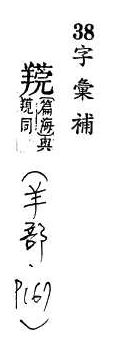 38
字彙補
篇海與
同
(羊部·P167)